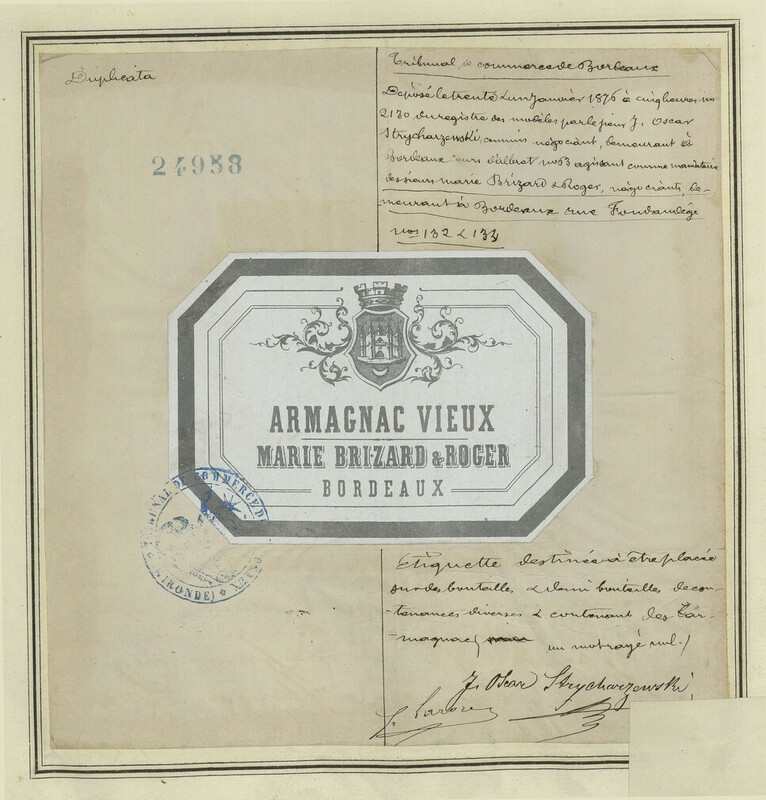 Duplicata
24958
Tribunal de commerce de Bordeaux
Déposé le trente & un Janvier 1876 à cinq heures no
2130 du registre des modèles par le sieur J. Oscar
Strycharzewski, commis négociant, demeurant à
Bordeaux cours d'albret no 3 agissant comme mandataire
des sieurs marie Brizard & Roger, négociants, de-
meurant à Bordeaux rue Fondaudège
nos 132 & 134
ARMAGNAC VIEUX
MARIE BRIZARD & ROGER
BORDEAUX
TRIBUNAL DE COMMERCE DE BORDEAUX
(GIRONDE)
Etiquette destinée à être placée
sur des bouteilles & demi bouteilles de con-
-tenances diverses & contenant de l'ar-
-magnac ( un mot rayé nul . )
J. Oscar Strycharzewski